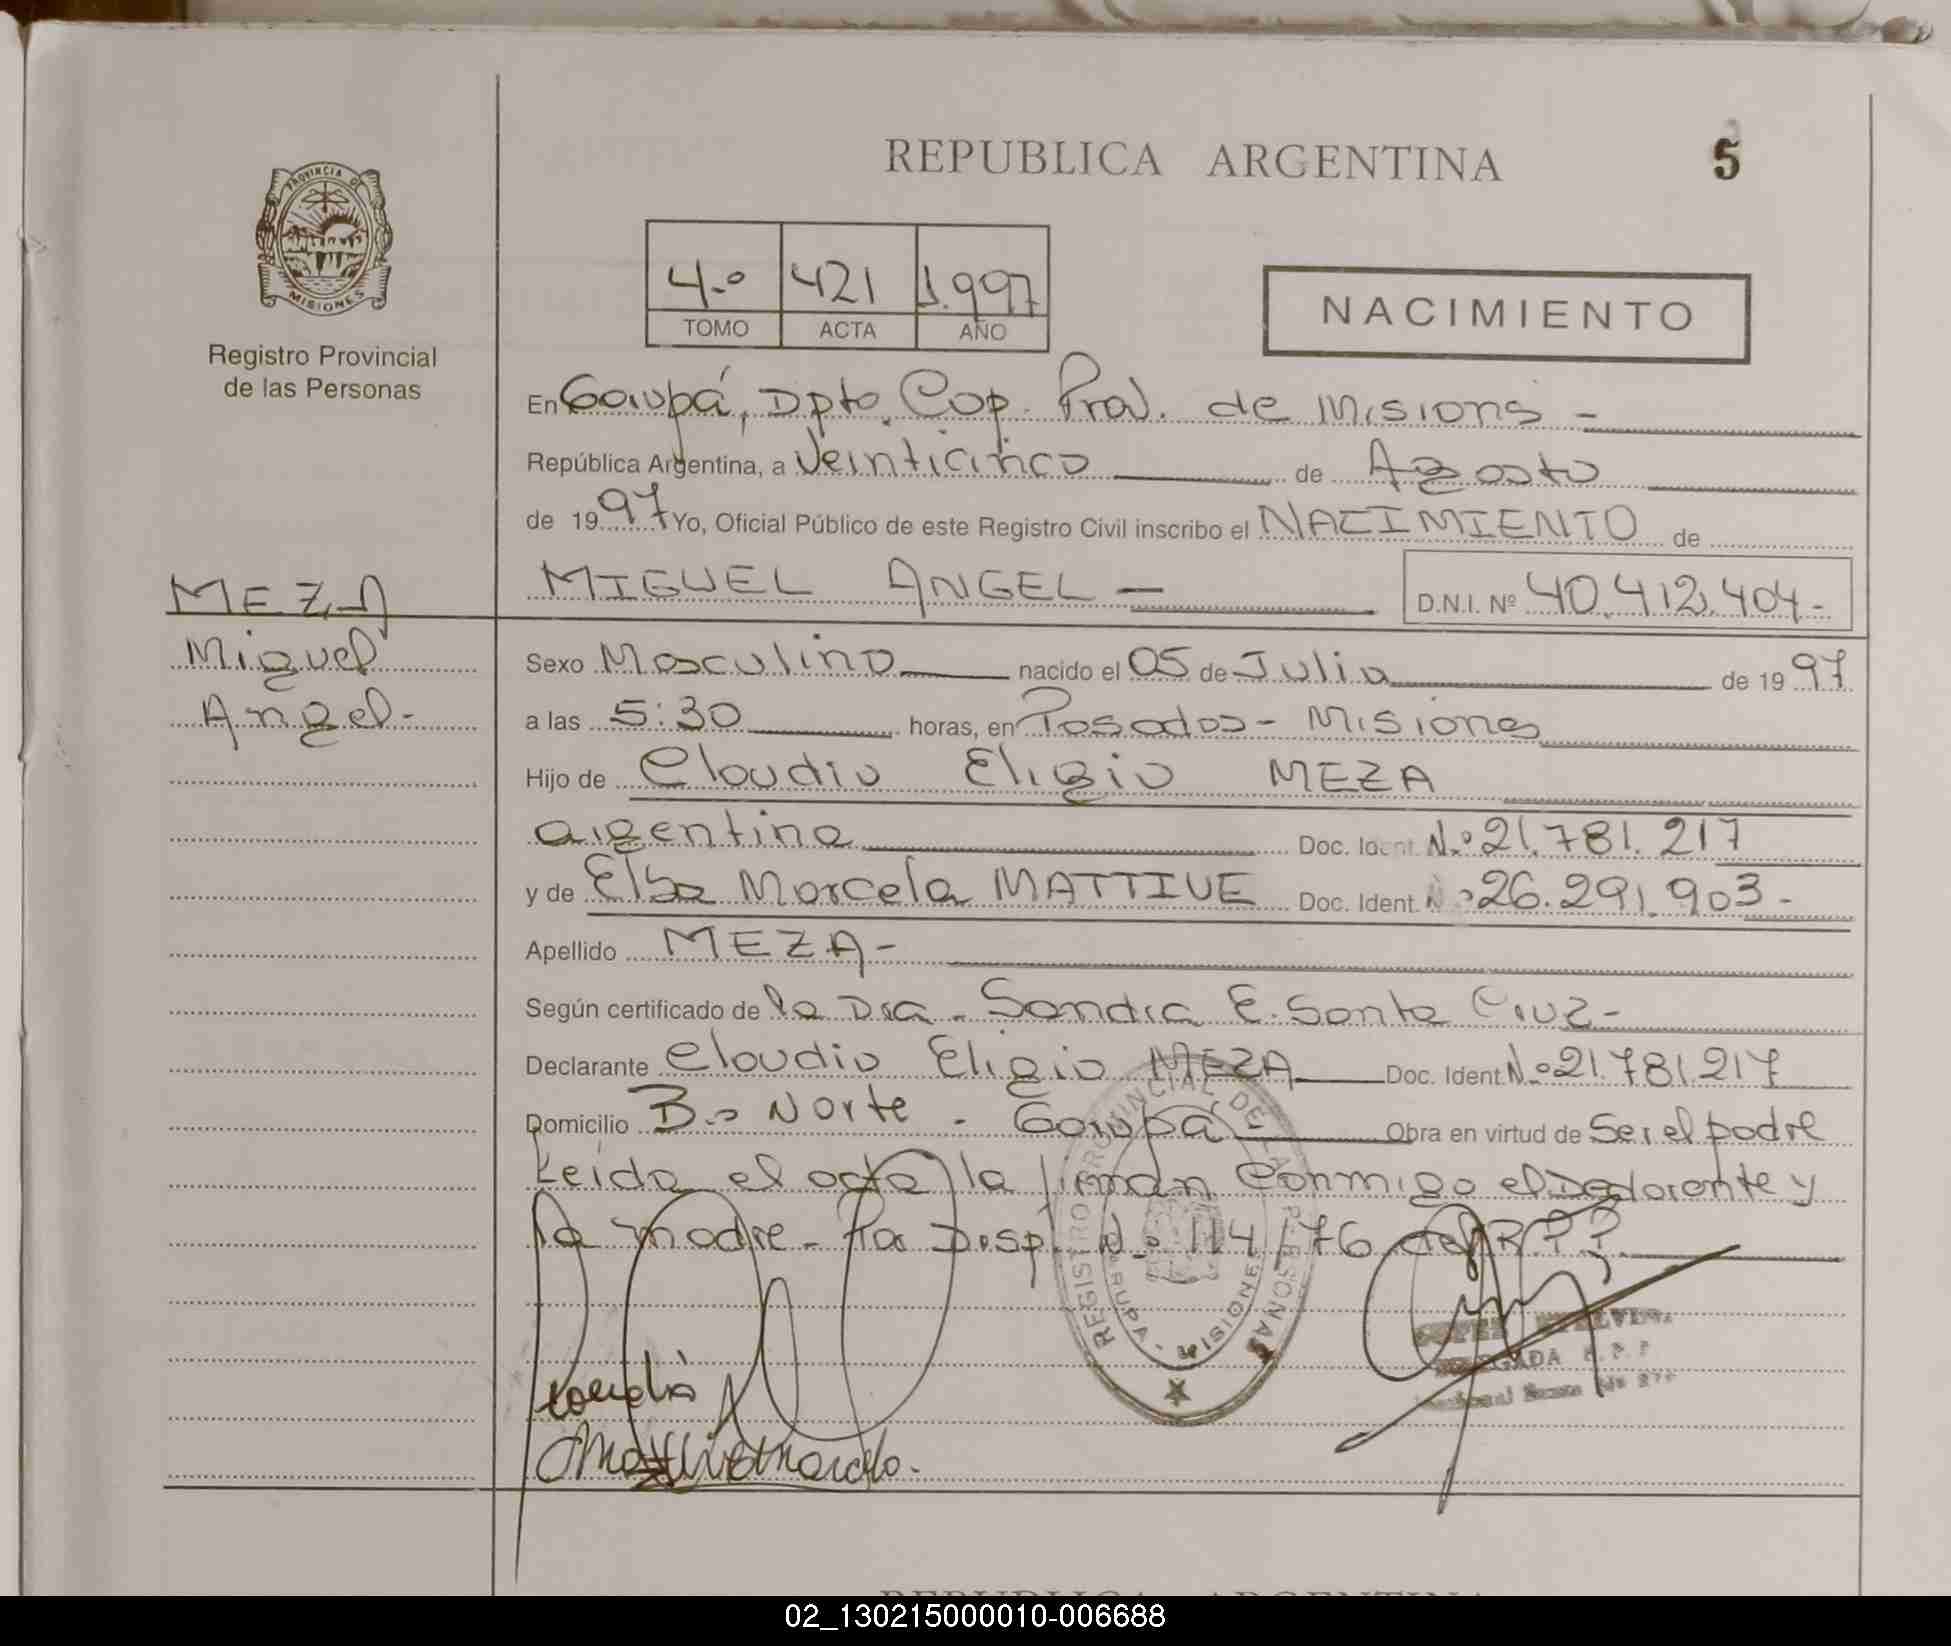 REPUBLICA ARGENTINA
5
PROVINCIA DE
MISIONES
Registro Provincial
de las Personas
4.º 421 1.997
TOMO ACTA AÑO
NACIMIENTO
En Garupá, Dpto. Cap. Prov. de Misions -
República Argentina, a Veinticinco de Agosto
de 1997 Yo, Oficial Público de este Registro Civil inscribo el NACIMIENTO de
MIGUEL ANGEL - D.N.I. Nº 40.412.404-
MEZA
Miguel
Angel-
Sexo Masculino nacido el 05 de Julio de 1997
a las 5:30 horas, en Posadas - Misiones
Hijo de Claudio Eligio MEZA
argentino Doc. Ident. N.º 21.781.217
y de Elba Marcela MATTIVE Doc. Ident. Nº 26.291.903-
Apellido MEZA-
Según certificado de la Dra. Sandra E. Santa Cruz-
Declarante Claudio Eligio MEZA Doc. Ident. N.º 21.781.217
Domicilio B.º Norte - Garupá - Obra en virtud de Ser el padre
Leída el acta la firman conmigo el Declarante y
la madre - Por Disp. N.º 114/76 del R.P.P.
REGISTRO PROVINCIAL DE LAS PERSONAS
MISIONES
DELEGADA R.P.P.
02_130215000010-006688